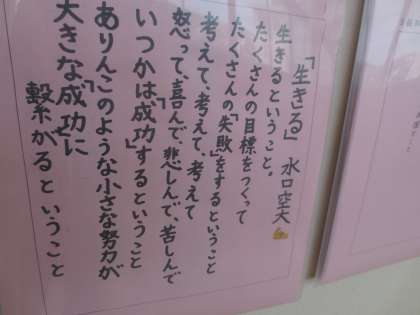 「生きる」 水口空大
生きるということ。
たくさんの目標をつくって
たくさんの「失敗」をするということ
考えて、考えて、考えて
怒って、喜んで、悲しんで、苦しんで
いつかは「成功」するということ
ありんこのような小さな努力が
大きな「成功」に
繋がるということ